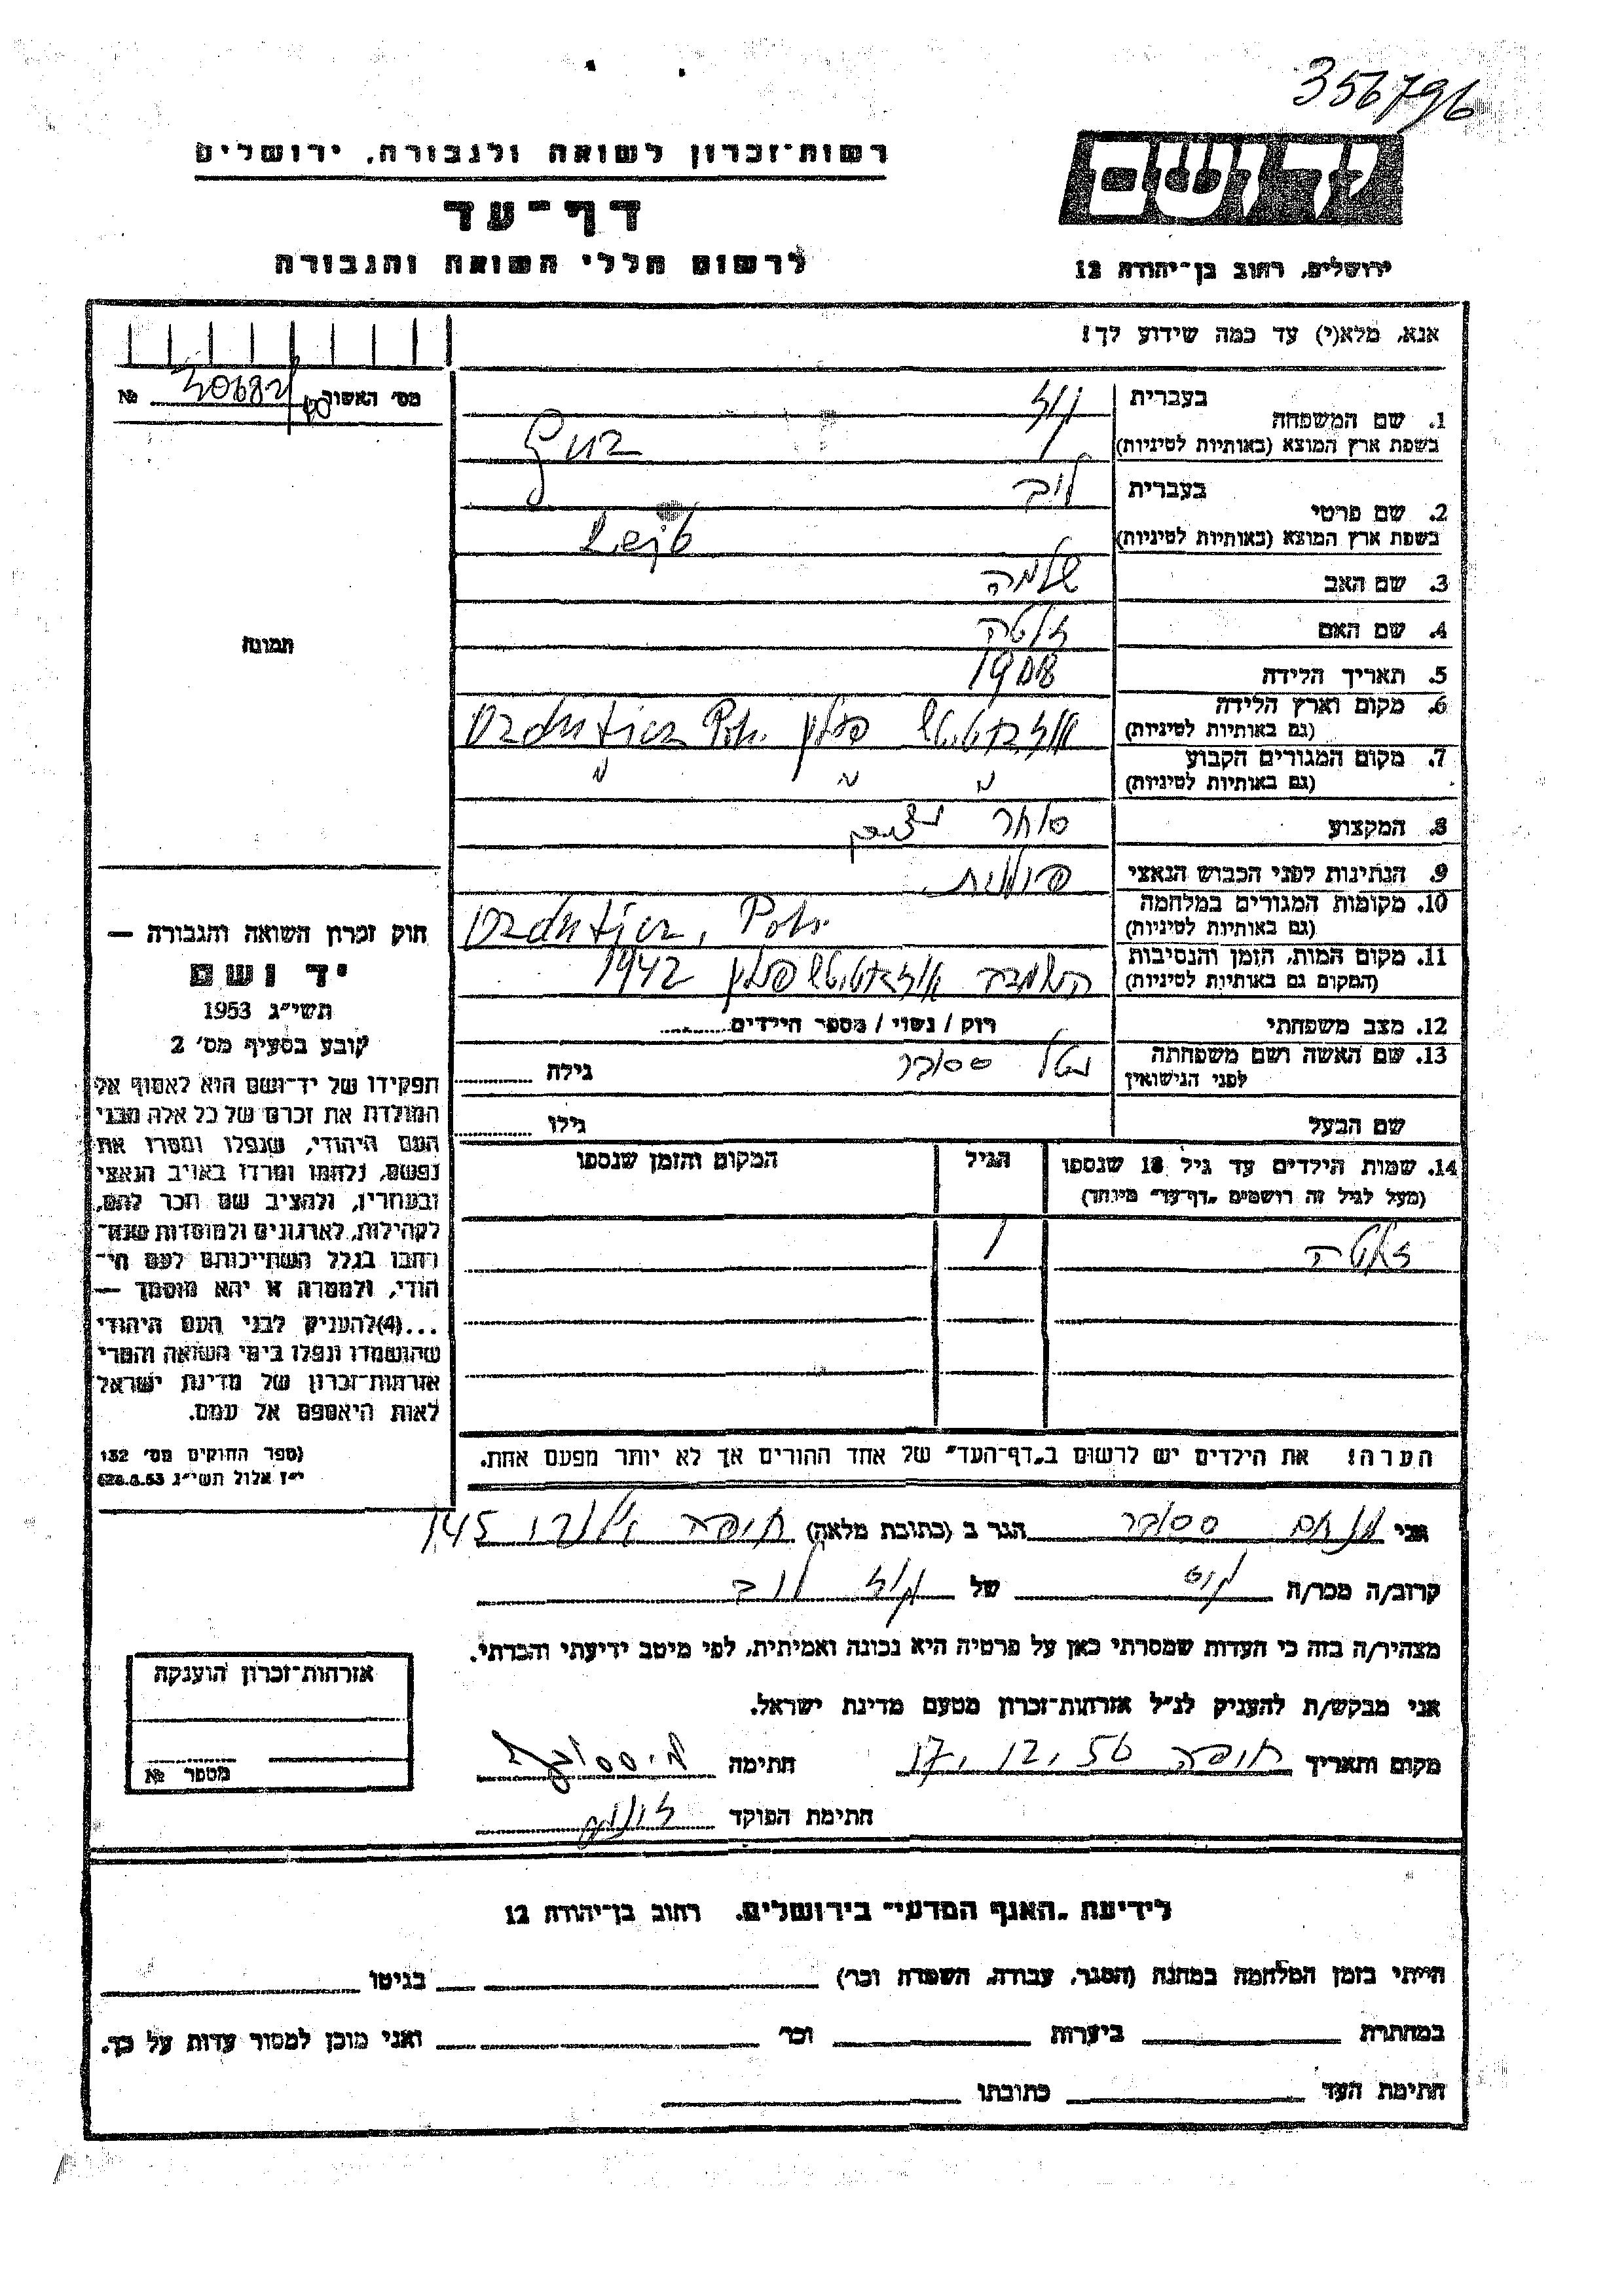 356796
רשות־זכרון לשואה ולגבורה, ירושלים
דף־עד
לרשום חללי השואה והגבורה
יד ושם
ירושלים, רחוב בן־יהודה 12
אנא, מלא(י) עד כמה שידוע לך!
מס' האשור 30682/40 №
1. שם המשפחה
בעברית
בשפת ארץ המוצא (באותיות לטיניות)
2. שם פרטי
בעברית לייב
בשפת ארץ המוצא (באותיות לטיניות) Lejb
3. שם האב שלמה
4. שם האם זלטה
5. תאריך הלידה 1908
6. מקום וארץ הלידה
(גם באותיות לטיניות) פולין
7. מקום המגורים הקבוע
(גם באותיות לטיניות) " " "
8. המקצוע סוחר
9. הנתינות לפני הכבוש הנאצי פולנית
10. מקומות המגורים במלחמה
(גם באותיות לטיניות)
11. מקום המות, הזמן והנסיבות
(המקום גם באותיות לטיניות) פולין 1942
12. מצב משפחתי רוק / נשוי / מספר הילדים
13. שם האשה ושם משפחתה
לפני הנישואין גילה
שם הבעל גילו
14. שמות הילדים עד גיל 18 שנספו הגיל המקום והזמן שנספו
(מעל לגיל זה רושמים „דף־עד" מיוחד)
זלטה 1
הערה! את הילדים יש לרשום ב„דף־העד" של אחד ההורים אך לא יותר מפעם אחת.
תמונה
חוק זכרון השואה והגבורה —
יד ושם
תשי"ג 1953
קובע בסעיף מס' 2
תפקידו של יד־ושם הוא לאסוף אל
המולדת את זכרם של כל אלה מבני
העם היהודי, שנפלו ומסרו את
נפשם, נלחמו ומרדו באויב הנאצי
ובעוזריו, ולהציב שם וזכר להם,
לקהילות, לארגונים ולמוסדות שנח־
רבו בגלל השתייכותם לעם הי־
הודי, ולמטרה זו יהא מוסמך —
...(4) להעניק לבני העם היהודי
שהושמדו ונפלו בימי השואה והמרי
אזרחות־זכרון של מדינת ישראל
לאות היאספם אל עמם.
(ספר החוקים מס' 132
י"ז אלול תשי"ג 28.8.53)
אני מנחם הגר ב (כתובת מלאה) חיפה 145
קרוב/ה מכר/ה גיס של לייב
מצהיר/ה בזה כי העדות שמסרתי כאן על פרטיה היא נכונה ואמיתית, לפי מיטב ידיעתי והכרתי.
אני מבקש/ת להעניק לנ"ל אזרחות־זכרון מטעם מדינת ישראל.
מקום ותאריך חיפה 17.12.56 חתימה
חתימת הפוקד
אזרחות־זכרון הוענקה
מספר №
לידיעת „האגף המדעי" בירושלים, רחוב בן־יהודה 12
הייתי בזמן המלחמה במחנה (הסגר, עבודה, השמדה וכו') בגיטו
במחתרת ביערות וכו' ואני מוכן למסור עדות על כך.
חתימת העד כתובתו